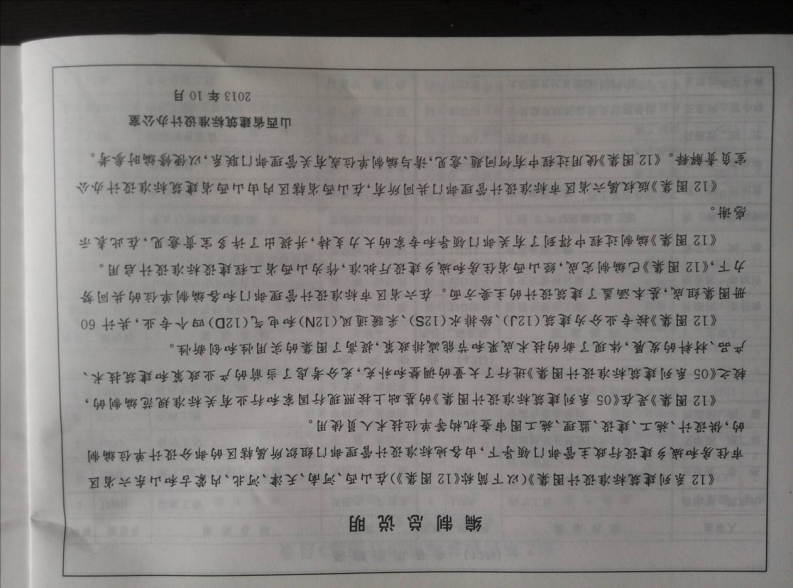 编制总说明
《12系列建筑标准设计图集》(以下简称《12图集》)在山西、河南、天津、河北、内蒙古和山东六省区
市住房和城乡建设行政主管部门领导下，由各地标准设计管理部门组织所属辖区的部分设计单位编制
的，供设计、施工、建设、监理、施工图审查机构等单位技术人员使用。
《12图集》是在《05系列建筑标准设计图集》的基础上按照现行国家和行业有关标准规范编制的，
较之《05系列建筑标准设计图集》进行了大量的调整和补充，充分考虑了当前的产业政策和建筑技术、
产品、材料的发展，体现了新的技术成果和节能减排政策，提高了图集的实用性和创新性。
《12图集》按专业分为建筑(12J)、给排水(12S)、采暖通风(12N)和电气(12D)四个专业，共计60
册图集组成，基本涵盖了建筑设计的主要方面。在六省区市标准设计管理部门和各编制单位的共同努
力下，《12图集》已编制完成，经山西省住房和城乡建设厅批准，作为山西省工程建设标准设计启用。
《12图集》编制过程中得到了有关部门领导和专家的大力支持，并提出了许多宝贵意见，在此表示
感谢。
《12图集》版权属六省区市标准设计管理部门共同所有，在山西省辖区内由山西省建筑标准设计办公
室负责解释。《12图集》使用过程中有何问题、意见，请与编制单位或有关管理部门联系，以便修编时参考。
山西省建筑标准设计办公室
2013年10月